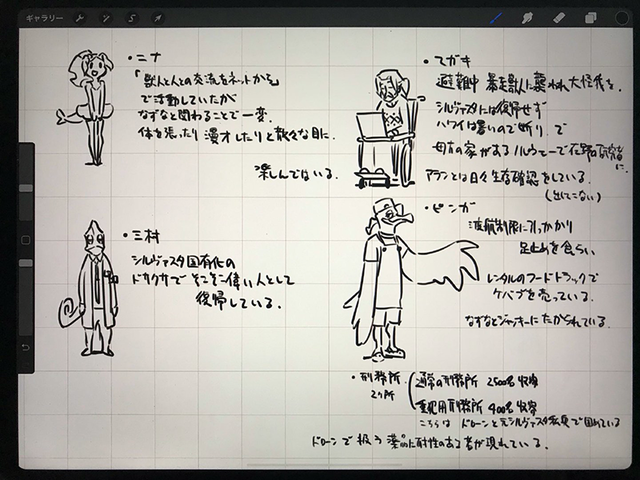 ギャラリー
・ニナ
「獣人と人との交流をネットから」
で活動していたが
なずなと関わることで一変。
体を張ったり漫才したりと散々な目に.
楽しんではいる.
・三村
シルヴァスタ国有化の
ドサクサで そこそこ偉い人として
復帰している.
・マガキ
避難中 暴走獣人に襲われ大怪我を.
シルヴァスタには復帰せず
ハワイは暑いので断り. で
母方の家があるノルウェーで在野の研究者に.
アランとは日々生存確認をしている.
(出てこない)
・ピンガ
渡航制限に引っかかり
足止めを食らい
レンタルのフードトラックで
ケバブを売っている.
なずなとジャッキーにたかられている.
・刑務所
2ヶ所
通常の刑務所 2500名 収容
重犯用刑務所 400名 収容
こちらは ドローンと元シルヴァスタ私兵で固めている
ドローンで扱う薬品に耐性のある者が現れている.